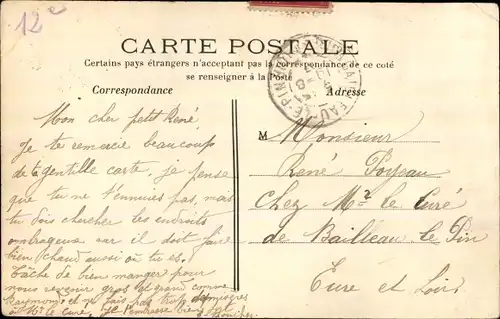 12e
CARTE POSTALE
Certains pays étrangers n'acceptant pas la correspondance de ce coté
se renseigner à la Poste
Correspondance
Adresse
Mon cher petit René,
Je te remercie beaucoup
de ta gentille carte. je pense
que tu ne t'ennuies pas, mais
tu dois chercher les endroits
ombrageux car il doit faire
bien chaud aussi où tu es.
Tâche de bien manger pour
nous revenir gros et grand comme
Raymond; et ne fais pas trop
à Mr le Curé, je t'embrasse bien fort
M Monsieur
René Poyeau
Chez Mr le Curé
de Bailleau le Pin
Eure et Loir